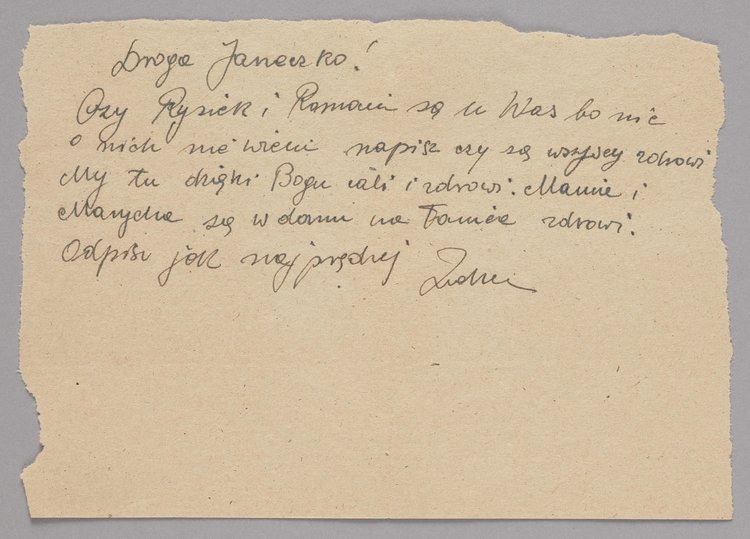 Droga Janeczko!
Czy Rysiek i Roman są u Was bo nic
o nich nie wiem napisz czy są wszyscy zdrowi
My tu dzięki Bogu cali i zdrowi. Mamie i
Marycha są w domu na zdrowi.
Odpisz jak najprędzej